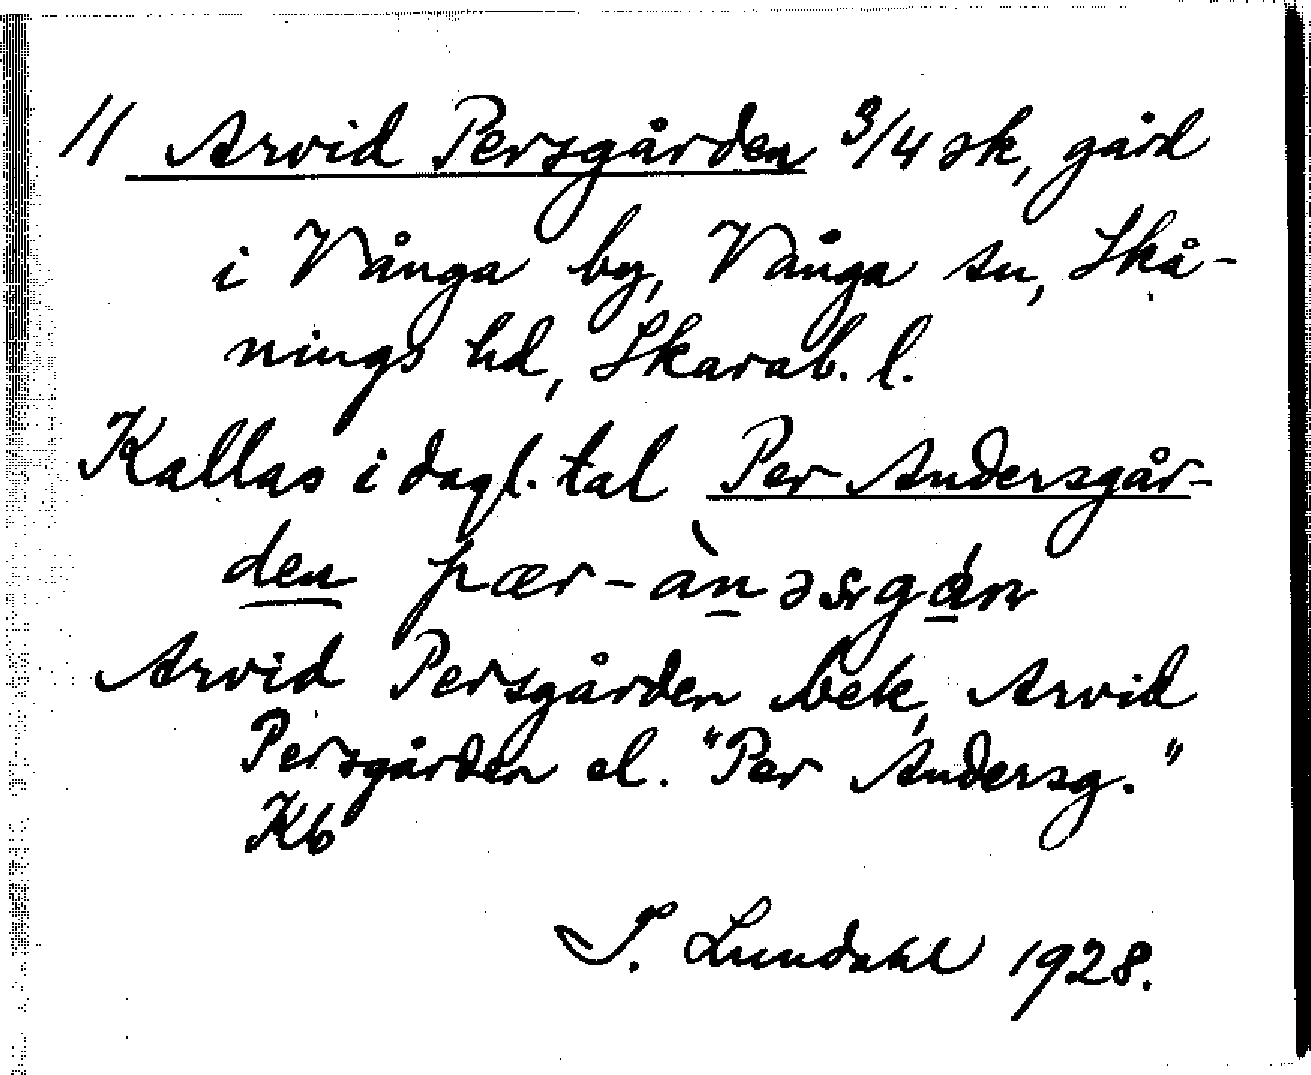 // Arvid Persgården 3/4 sk, gård
i Vånga by, Vånga sn, Skå-
nings hd, Skarab. l.
Kallas i dagl. tal Per Andersgår-
den pær-
Arvid Persgården bek, Arvid
Persgården el. "Per Andersg."
Kb
I. Lundahl 1928.